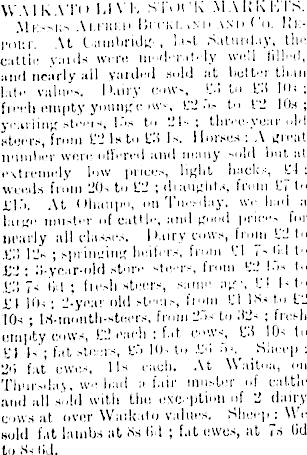 WAIKATO LIVE STOCK MARKETS.
MESSRS ALFRED BUCKLAND AND CO. RE-
PORT. At Cambridge, last Saturday, the
cattle yards were moderately well filled,
and nearly all yarded sold at better than
late values. Dairy cows, £3 to £3 10s;
fresh empty young cows, £2 5s to £2 10s;
yearling steers, 15s to 24s; three-year old
steers, from £2 1s to £3 1s. Horses: A great
number were offered and many sold but at
extremely low prices, light hacks, £4;
weeds from 20s to £2; draughts, from £7 to
£15. At Ohaupo, on Tuesday, we had a
large muster of cattle, and good prices for
nearly all classes. Dairy cows, from £2 to
£3 12s; springing heifers, from £1 7s 6d to
£2; 3-year-old store steers, from £2 15s to
£3 7s 6d; fresh steers, same age, £4 1s to
£4 10s; 2-year old steers, from £1 18s to £2
10s; 18-month-steers, from 25s to 32s; fresh
empty cows, £2 each; fat cows, £3 10s to
£4 4s; fat steers, £5 10s to £6 5s. Sheep:
26 fat ewes, 11s each. At Waitoa, on
Thursday, we had a fair muster of cattle
and all sold with the exception of 2 dairy
cows at over Waikato values. Sheep: We
sold fat lambs at 8s 6d; fat ewes, at 7s 6d
to 8s 6d.